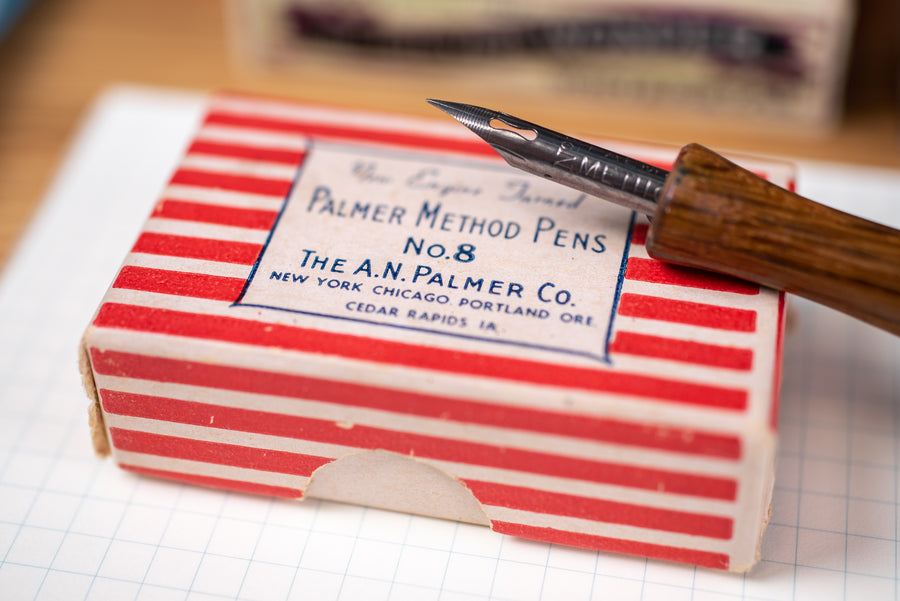 Engine Turned
PALMER METHOD PENS
No.8
THE A.N. PALMER CO.
NEW YORK CHICAGO, PORTLAND ORE.
CEDAR RAPIDS IA.